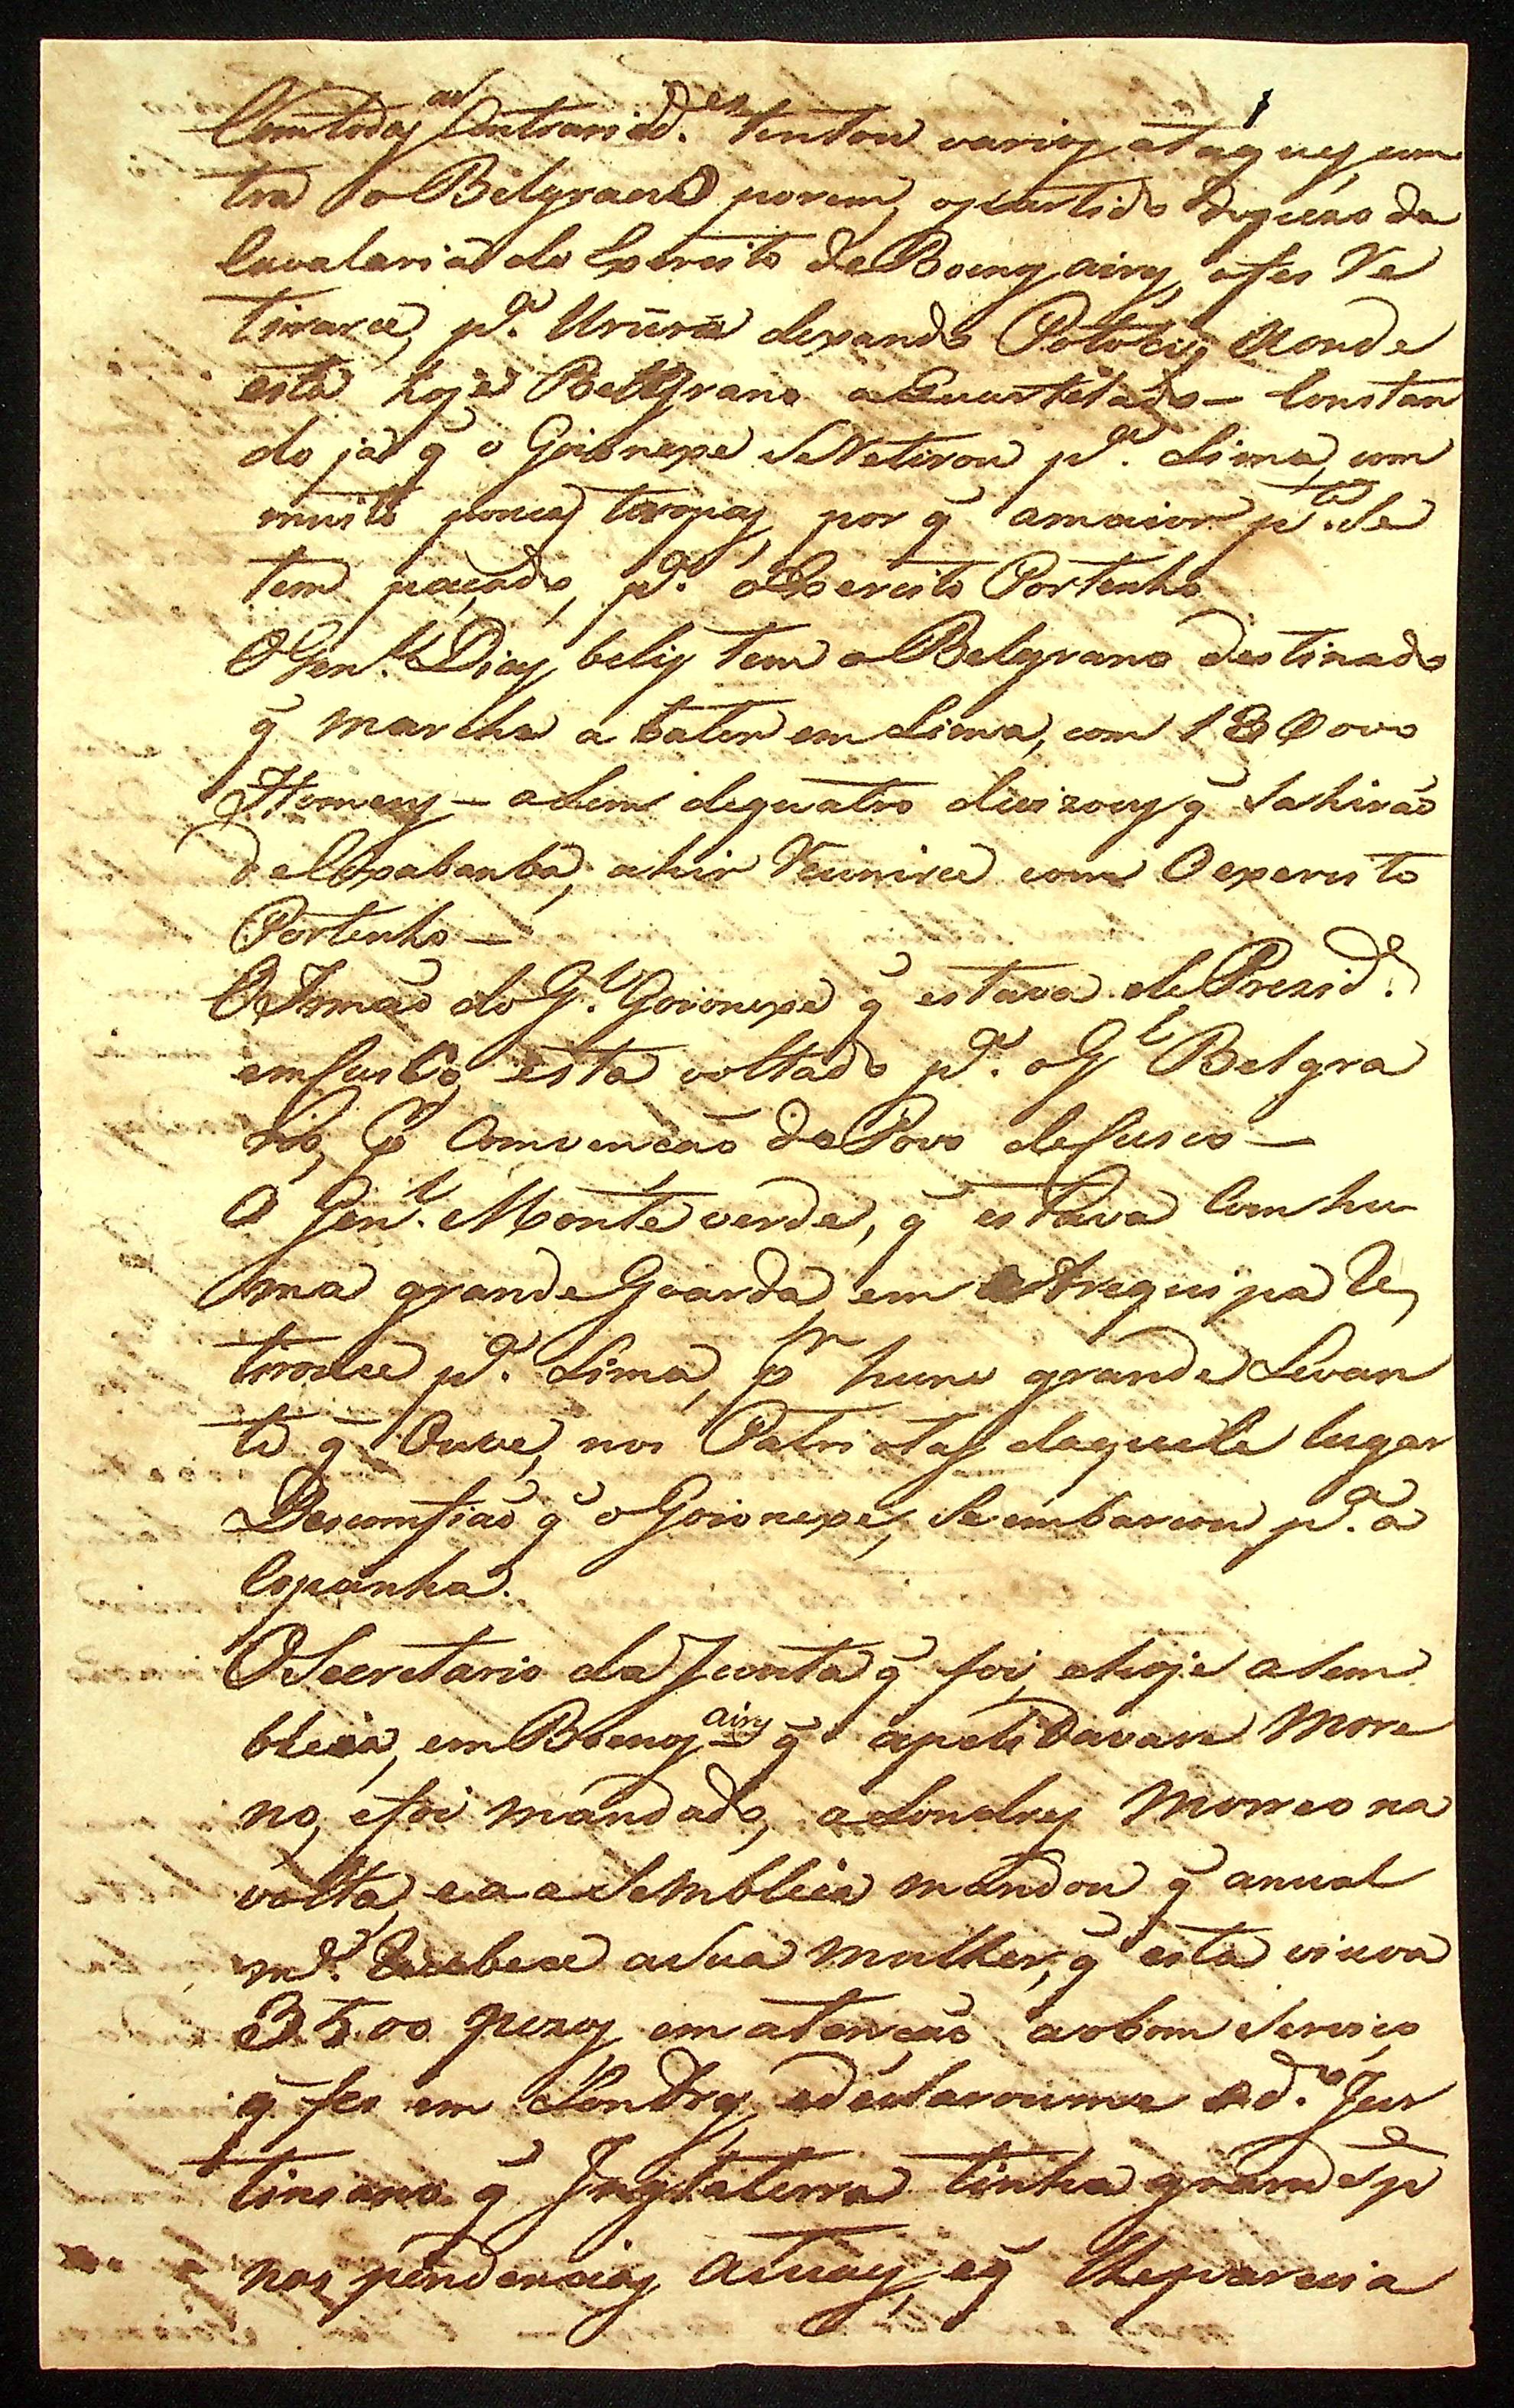 Com todas as Contraried.es tentou varios ataques com
tra o Belgrano porem, o partido da
Cavalaria do Exercito de Boenos aires, o fes Re
tirarce, p.a Ururo dexando Potocis aonde
está hoje Bellgrano aQuartelado — Constan
do ja q̃ o Goionexe se Retirou p.a Lima, com
muito poucas tropas, por q̃ a maior p.te se
tem paçado, p.a o Exercito Portenho
O Gen.l Dias belis tem o Belgrano destinado
q̃ marcha a bater em Lima, com 18000
Homens — alem de quatro divizoens q̃ Sahirão
de Coxabanba, a hir Reunirce com O exercito
Portenho —
O Irmão do G.l Goionexe q̃ estava de Prezid.e
em Cusco, esta voltado p.a o G.l Belgra
no, Comvencão do Povo de Cusco —
O Gen.l Monte verde, q̃ estava Com hu
ma grande Guarda, em Arequipa Re
tirouce p.a Lima, pr hum grande Levan
te q̃ Ouve, nos Patriotas daquele lugar
Descomfião q̃ o Goionexe, Se embarcou p.a a
Espanha.
O Secretario da Junta q̃ foi, e hoje a Sem
bleia, em Boenos aires q̃ apelidavan More
no, e foi mandado, a Londres morreo na
volta, e a aSembleia mandou q̃ anual
m.te Recebece a Sua mulher, q̃ esta viuva
3500 pezos, em atencão ao bom Serviço
q̃ fes em Londres, e declaroume o d.o Jus
tiniano q̃ Inglaterra tinha grande p
nas pendencias atuais, e q̃ lhe parecia